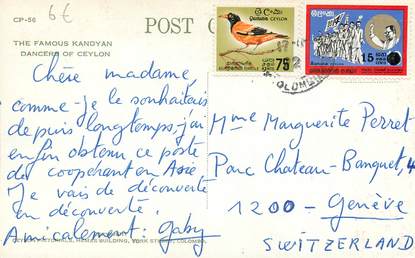 CP-56
6€
POST
THE FAMOUS KANDYAN
DANCERS OF CEYLON
Chère madame,
comme je le souhaitais
depuis longtemps j'ai
enfin obtenu ce poste
de coopérant en Asie
Je vais de découverte
en découverte.
Amicalement: Gaby
BUILDING, YORK STREET, COLOMBO
CEYLON
75
15
Mme Marguerite Perret
Parc Chateau-Banquet, 4
1200 - Genève
SWITZERLAND